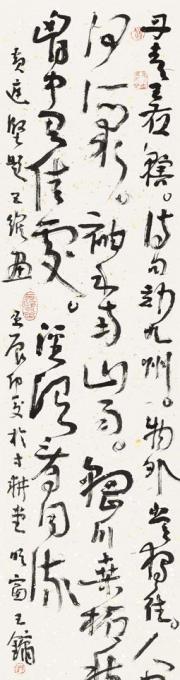 丹青王右轄。詩句妙九州。物外常獨往。人間
無所求。袖手南山雨。輞川桑柘秋
胸中有佳處。涇渭看同流
黃庭堅題王維畫 壬辰仲夏於寸耕堂明窗王鏞